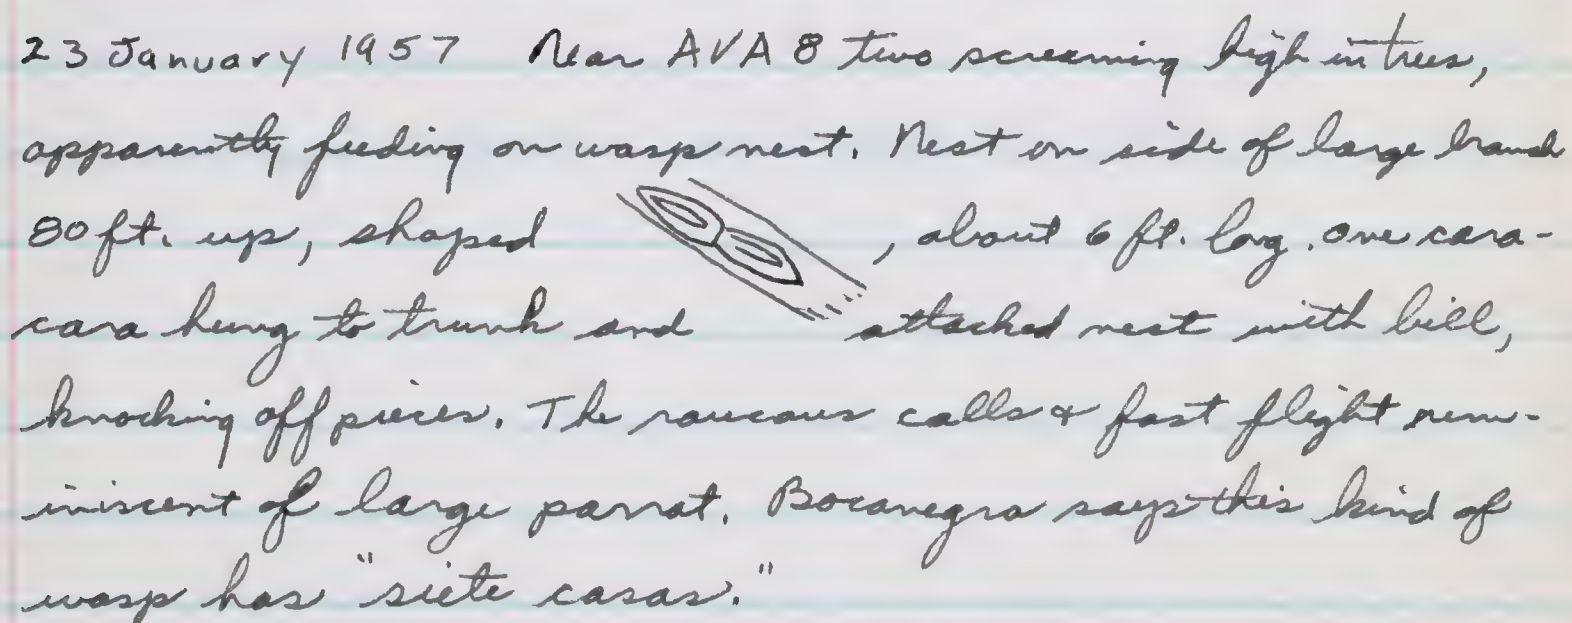 23 January 1957 Near AVA 8 two screaming high in trees,
apparently feeding on wasp nest. Nest on side of large branch
80 ft. up, shaped , about 6 ft. long. One cara-
cara hung to trunk and attacked nest with bill,
knocking off pieces. The raucous calls & fast flight rem-
iniscent of large parrot. Bocanegra says this kind of
wasp has "siete casas."